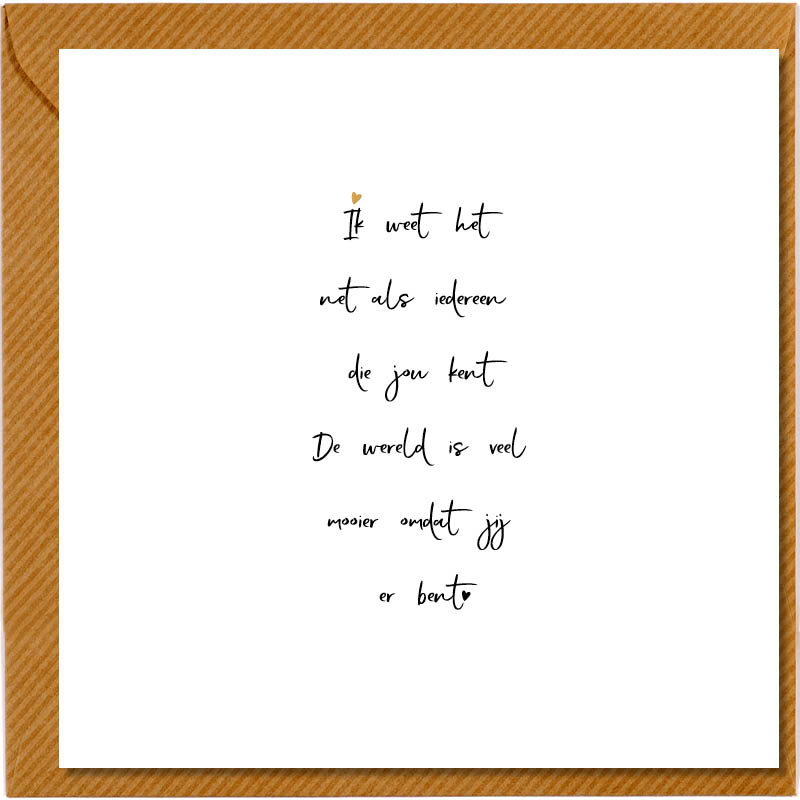 Ik weet het
net als iedereen
die jou kent
De wereld is veel
mooier omdat jij
er bent